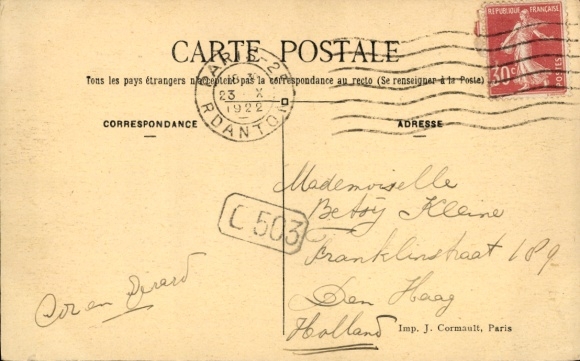 CARTE POSTALE
Tous les pays étrangers n'acceptent pas la correspondance au recto (Se renseigner à la Poste)
PARIS-25
23 X
1922
R DANTON
30c
POSTES
CORRESPONDANCE
ADRESSE
Mademoiselle
Betsy Kleine
Franklinstraat 189
Den Haag
Holland
C 503
Cor en Gerard
Imp. J. Cormault, Paris